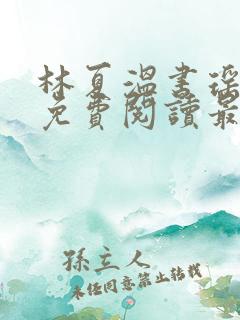 林夏溫書瑤
免費閱讀最
孫立人
未經同意禁止轉載